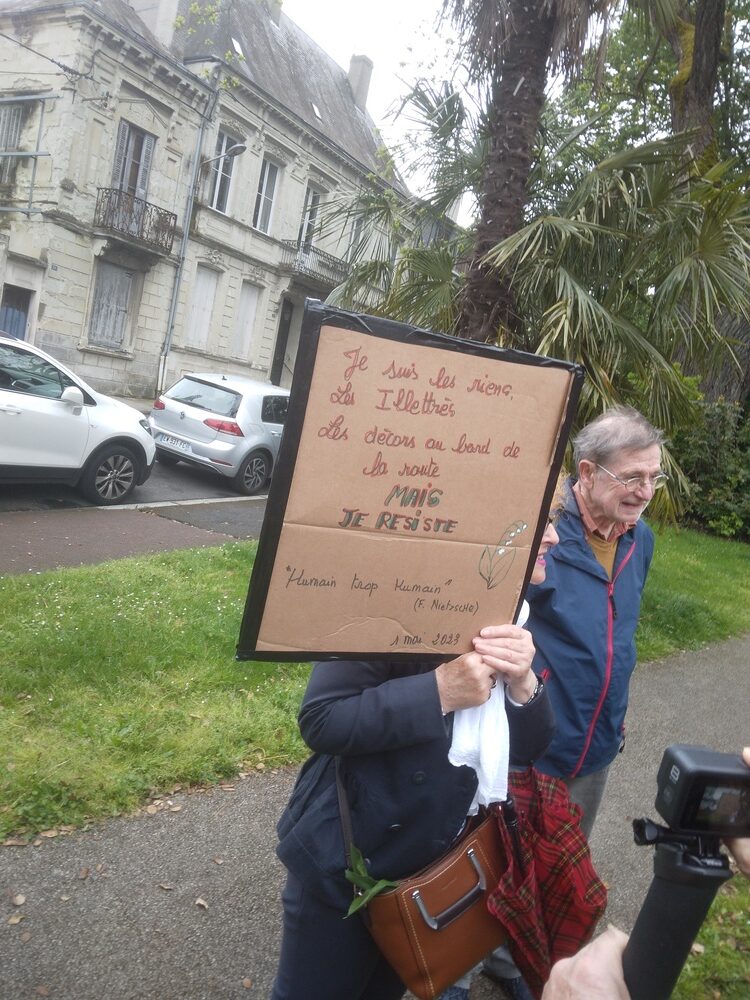 Je suis les riens,
Les Illettrés
Les décors au bord de
la route
MAIS
JE RESISTE
"Humain trop Humain"
(F. Nietzsche)
1 mai 2023